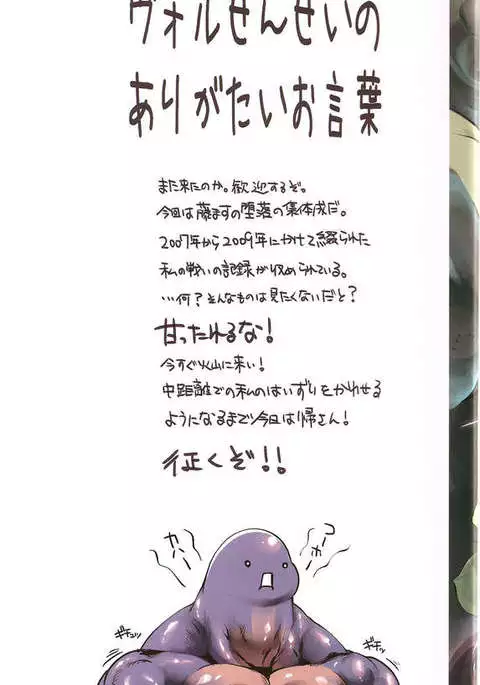 ヴォルせんせいの
ありがたいお言葉
また来たのか。歓迎するぞ。
今回は藤ますの堕落の集体成だ。
2007年から2009年にかけて綴られた
私の戦いの記録が収められている。
…何？そんなものは見たくないだと？
甘ったれるな！
今すぐ火山に来い！
中距離での私のはいずりをかわせる
ようになるまで今日は帰さん！
征くぞ！！
カハー
コーホー
ギチュッ
ギチッ